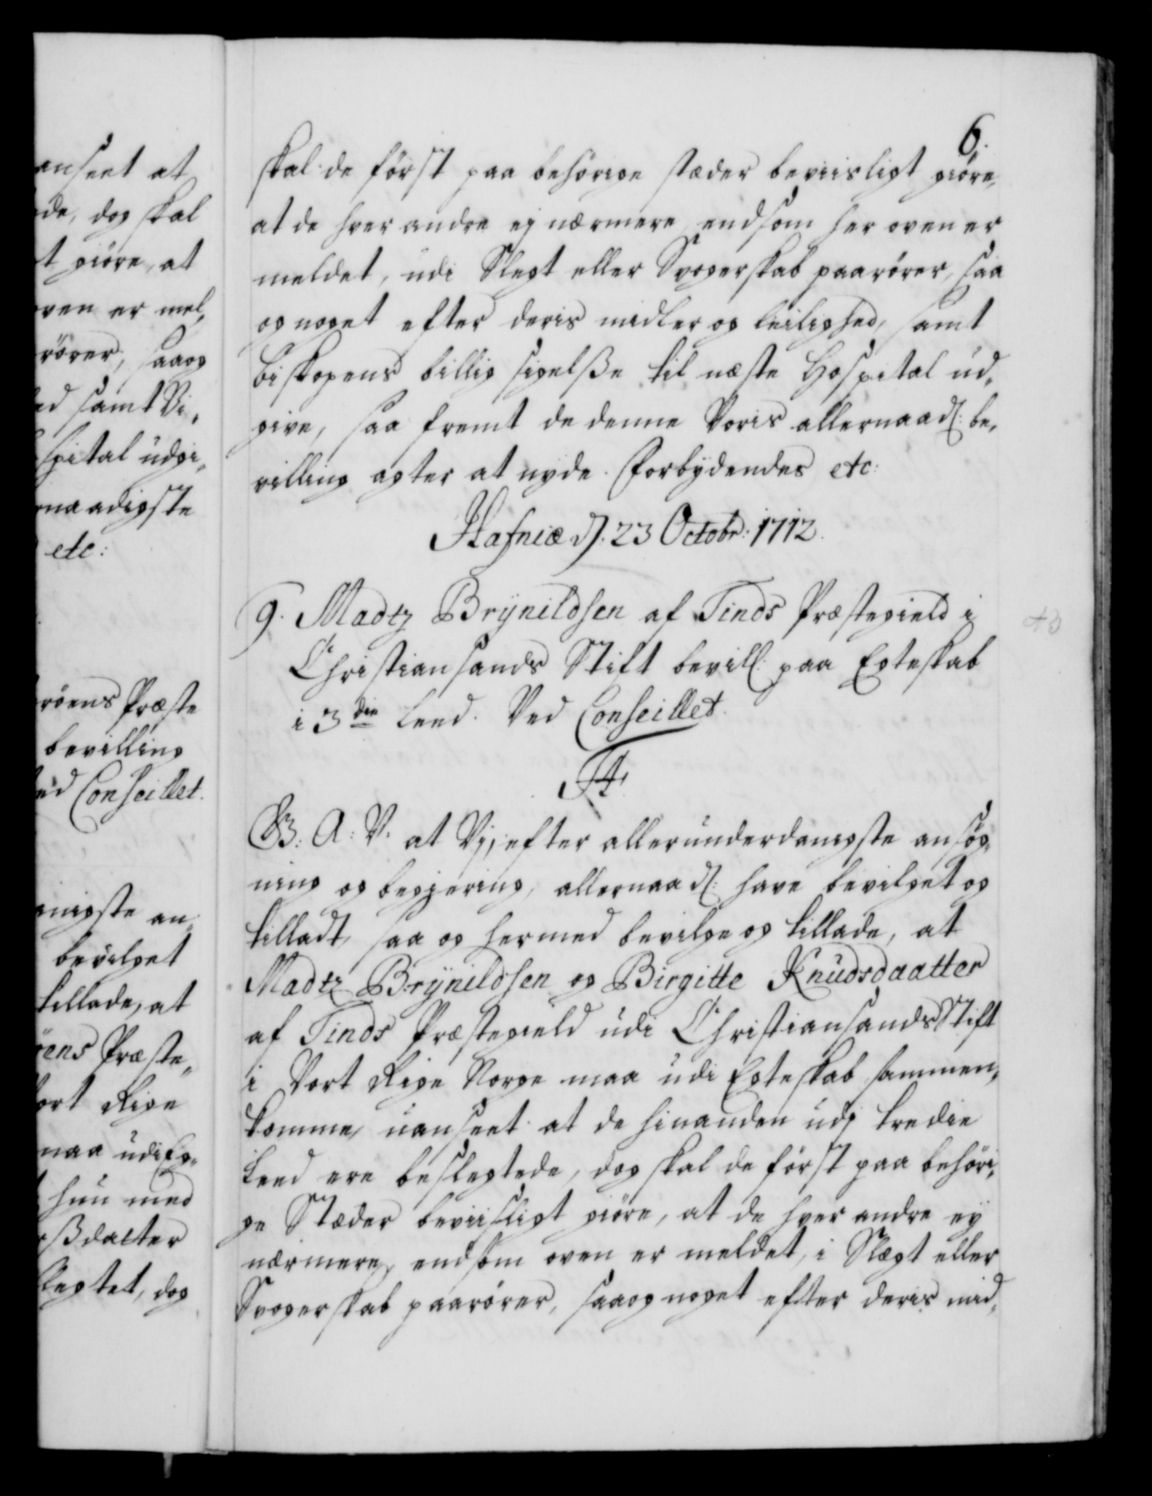 anseet at
de, dog skal
t giöre, at
oven er mel,
rörer, saaog
ed samt Bi,
spital udgi,
naadigste
etc:
röens Præste
bevilling
ed Conseillet.
anigste an,
bevilget
tillade, at
rens Præste,
ort Rige
maa udi Eg,
hun med
ßdatter
slegtet, dog
6.
skal de först paa behörige stæder beviisligt giöre,
at de hver andre ej nærmere, endsom her oven er
meldet, udi Slegt eller Svogerskab paarörer, saa
og noget efter deris midler og leilighed, samt
biskopens billig sigelße til næste Hospital ud,
give, saa fremt de denne Voris allernaad: be,
villing agter at nyde. Forbydendes etc:
Hafniæ d. 23 Octobr: 1712.
9. Madtz Brÿnildsen af Tinds Præstegield i
Christiansands Stift bevill: paa Egteskab
i 3die Leed. Ved Conseillet.
F4.
G: A: V. at Vj, efter allerunderdanigste ansøg,
ning og begjering, allernaad: have bevilget og
tilladt, saa og hermed bevilge og tillade, at
Madtz Brÿnildsen og Birgitte Knudsdaatter
af Tinds Præstegield udi Christiansands Stift
i Vort Rige Norge maa udi Egteskab sammen,
komme, uanseet at de hinanden udj tredie
Leed ere beslegtede, dog skal de först paa behöri,
ge Stæder beviisligt giöre, at de hver andre ey
nærmere, endsom oven er meldet, i Slægt eller
Svogerskab paarörer, saaog noget efter deris mid,